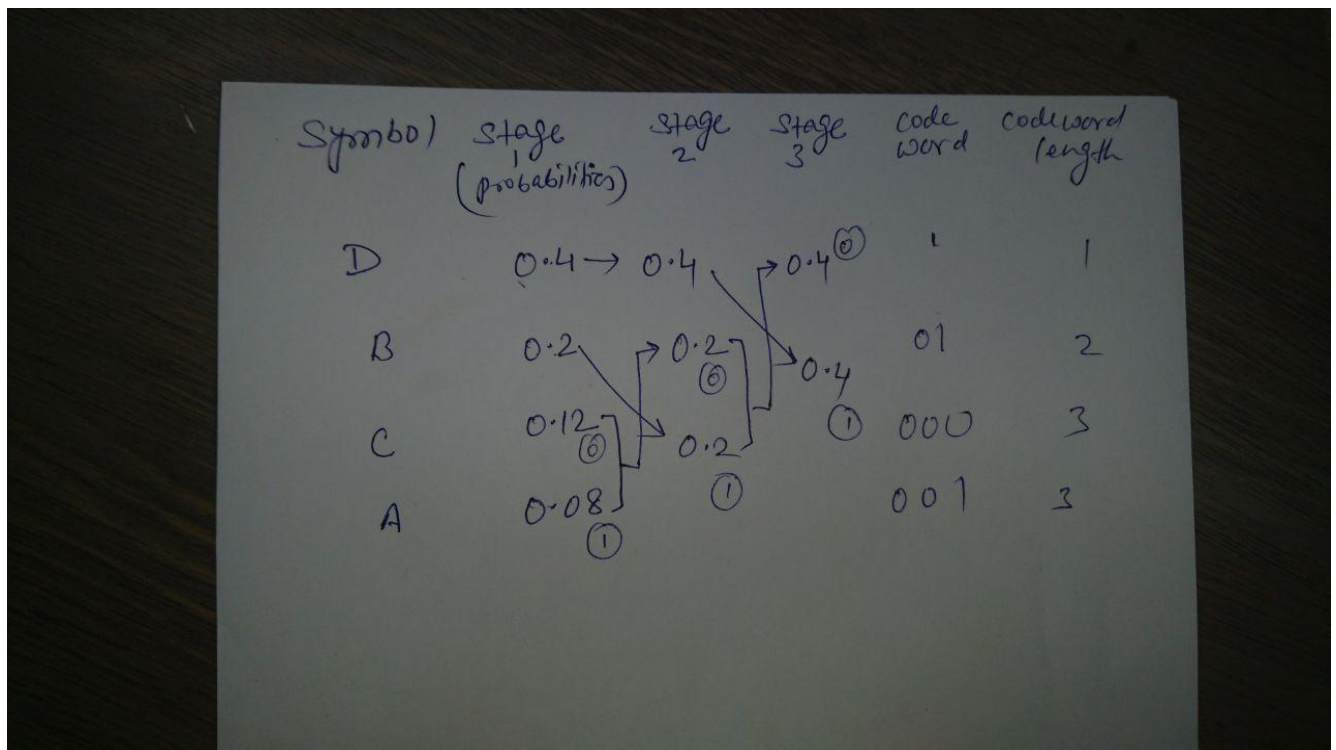 Symbol stage 1 (probabilities) stage 2 stage 3 code word codeword length
D 0.4 → 0.4 0.4 ⓪ 1 1
B 0.2 0.2 ⓪ 0.4 ① 01 2
C 0.12 ⓪ 0.2 ① 000 3
A 0.08 ① 001 3